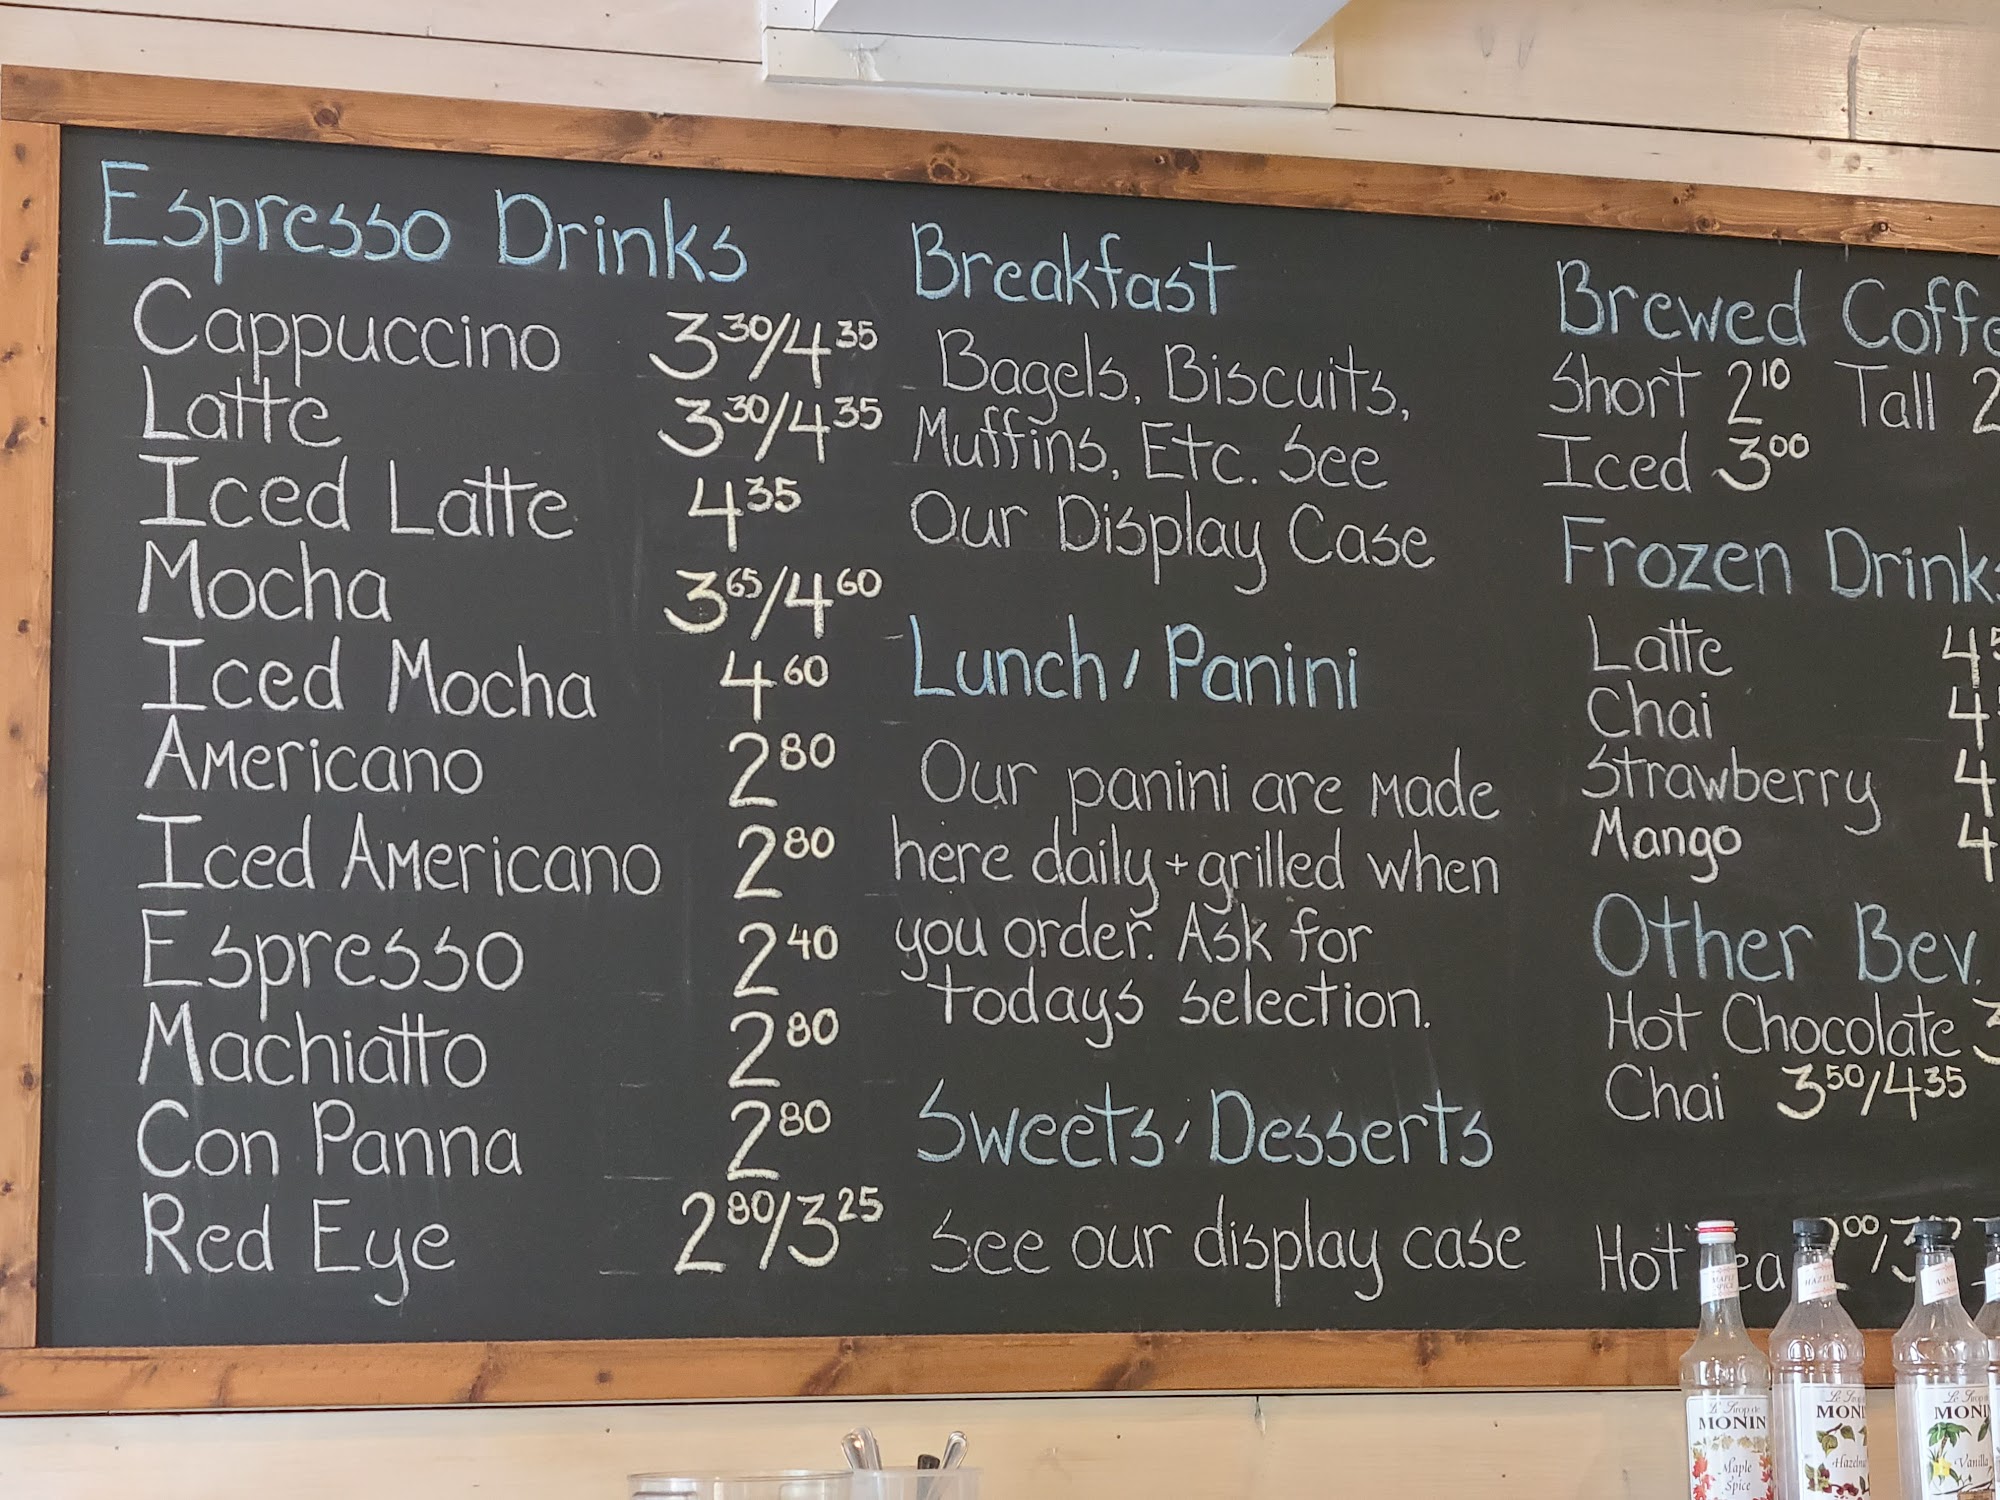 Espresso Drinks
Cappuccino 3.30/4.35
Latte 3.30/4.35
Iced Latte 4.35
Mocha 3.65/4.60
Iced Mocha 4.60
Americano 2.80
Iced Americano 2.80
Espresso 2.40
Machiatto 2.80
Con Panna 2.80
Red Eye 2.80/3.25
Breakfast
Bagels, Biscuits,
Muffins, Etc. See
Our Display Case
Lunch, Panini
Our panini are made
here daily + grilled when
you order. Ask for
todays selection.
Sweets, Desserts
See our display case
Brewed Coffe
Short 2.10 Tall 2
Iced 3.00
Frozen Drinks
Latte 4
Chai 4
Strawberry 4
Mango 4
Other Bev.
Hot Chocolate 3
Chai 3.50/4.35
Hot
MAPLE SPICE
Le Sirop de
MONIN
Maple
Spice
Le Sirop de
MONIN
VANI
MONIN
Vanilla